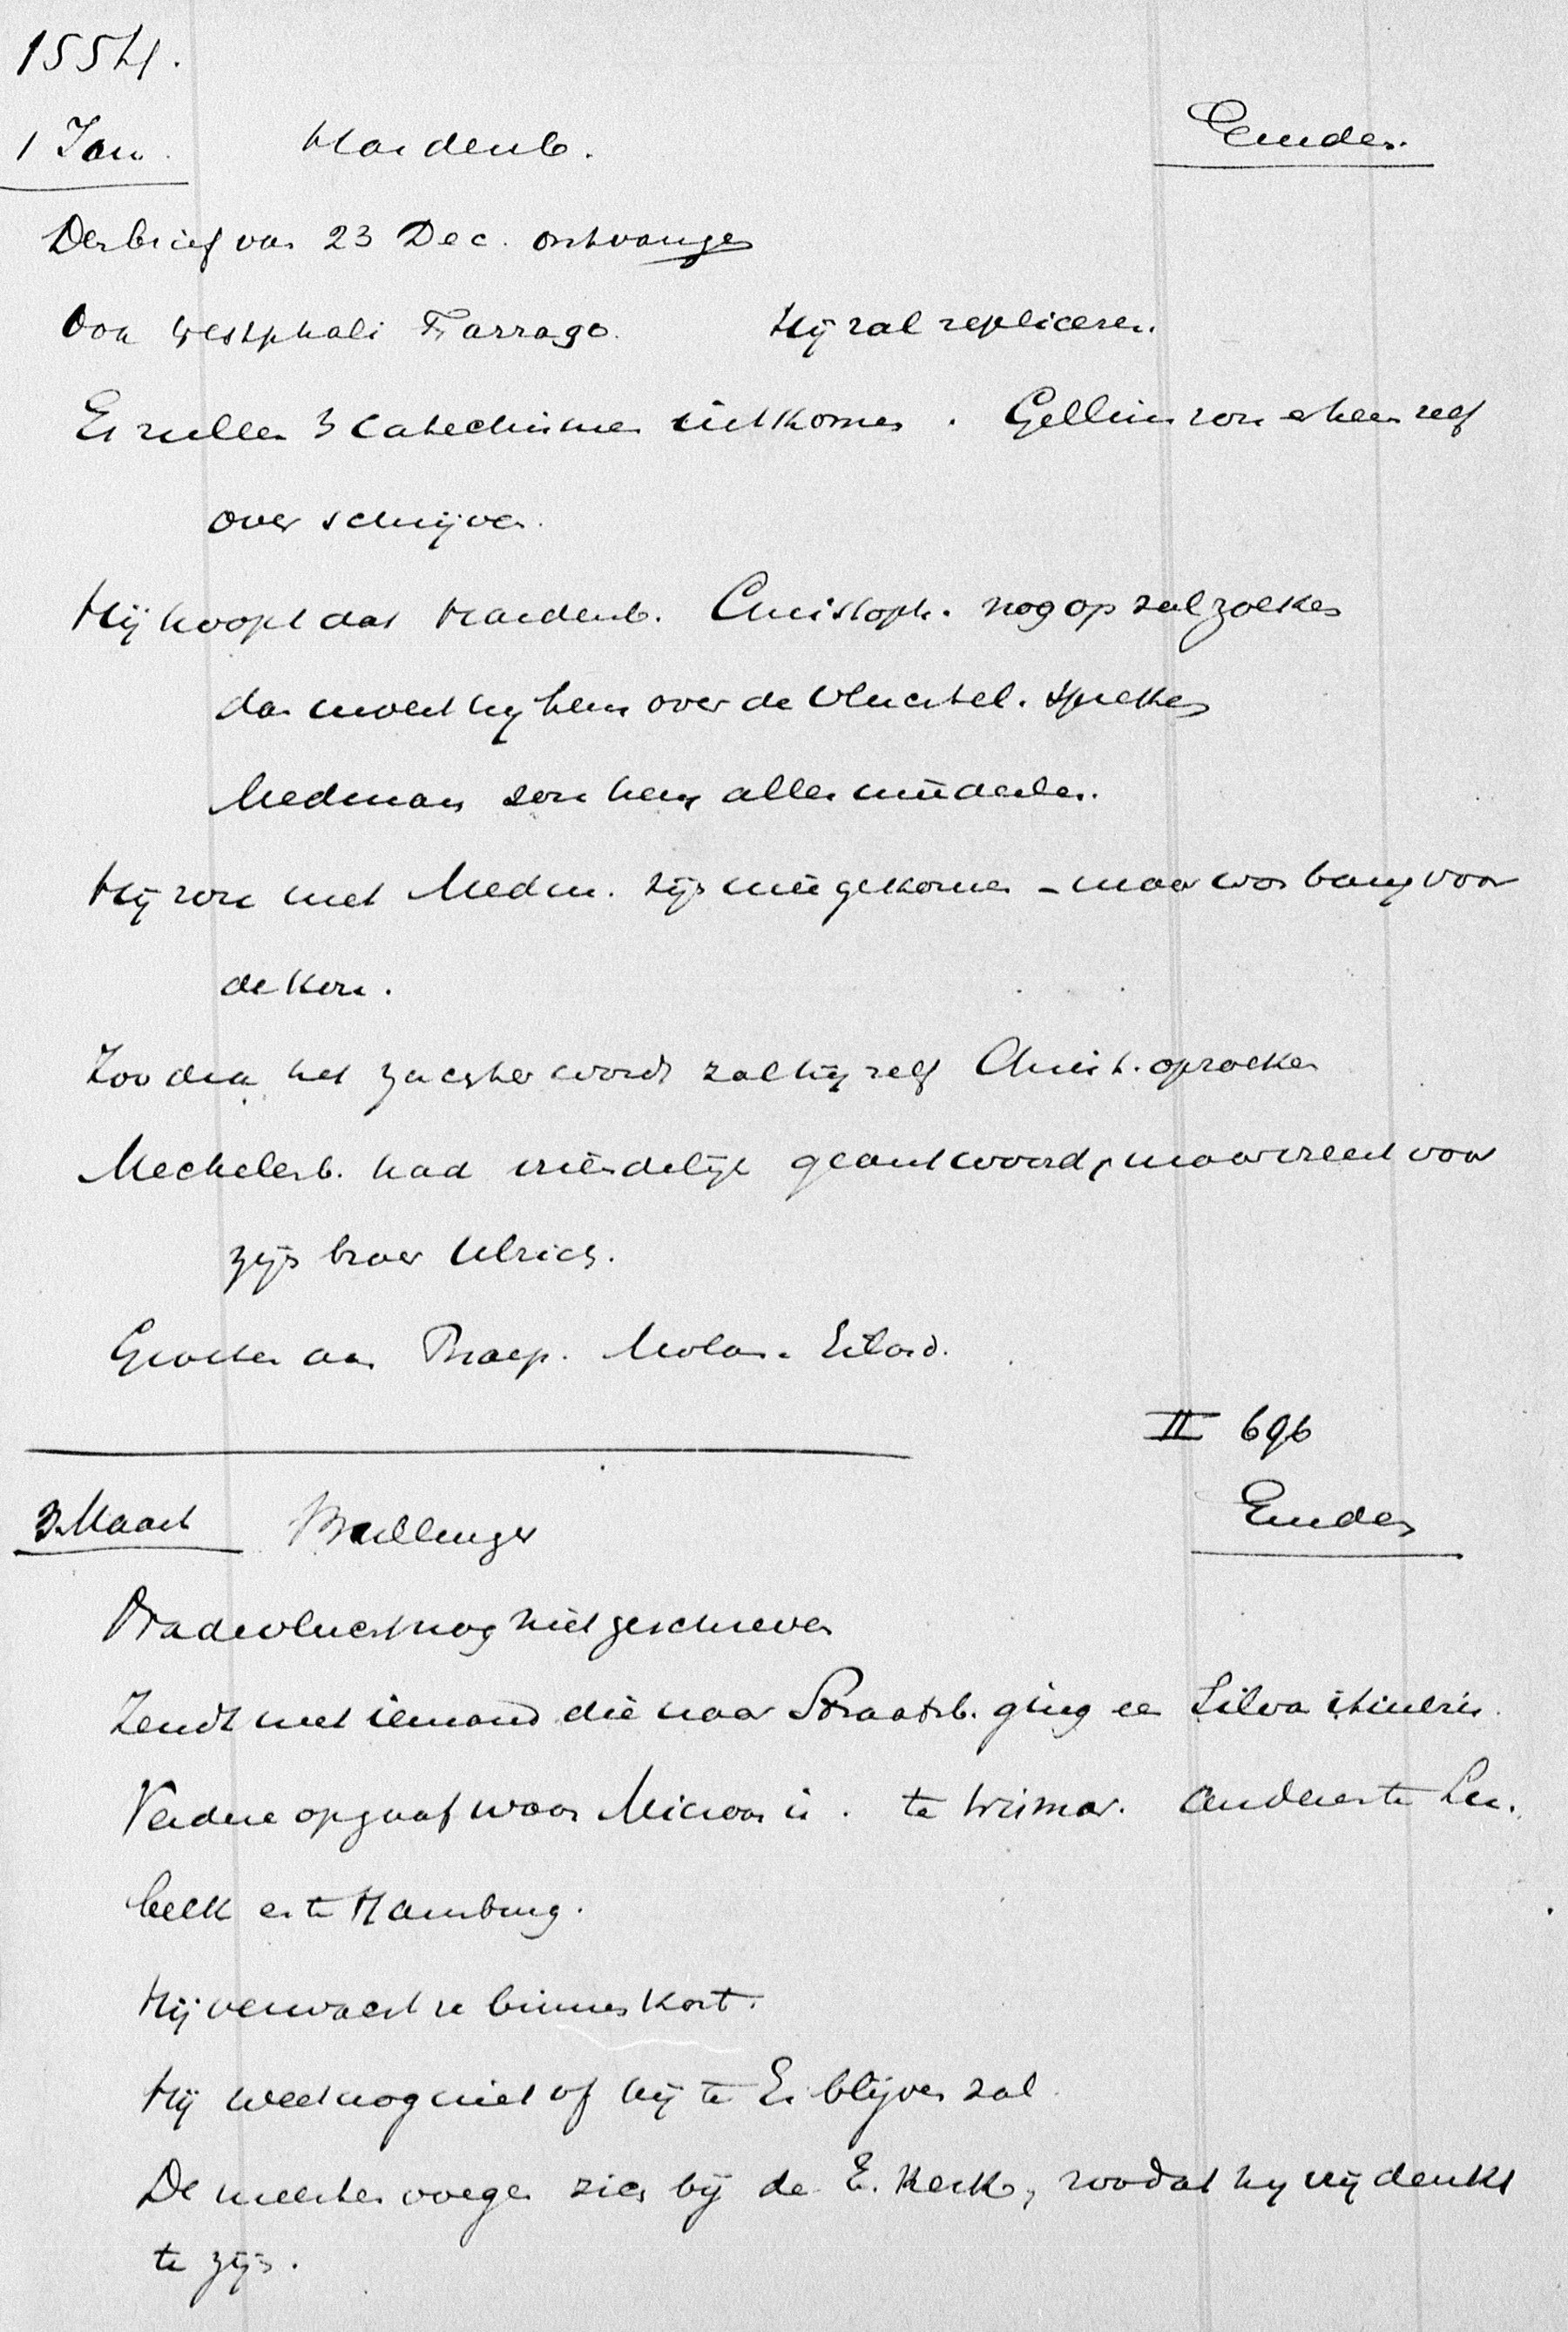 1554.
1 Jan. Hardenb. Emden.
Den brief van 23 Dec. ontvangen
Ook Westphali Farrago. Hij zal repliceren.
Er zullen 3 Catechismen uitkomen. Gellius zou er hem zelf
over schrijven.
Hij hoopt dat Hardenb. Christoph. nog op zal zoeken
dan moest hij hem over de vluchtel. spreken
Medman zou hem alles meedeelen.
Hij zou met Medm. zijn meegekomen - maar was bang voor
de kou.
Zoodra het zachter wordt zal hij zelf Christ. opzoeken
Mechelenb. had vriendelijk geantwoord, maar vreest voor
zijn broer Ulrich.
Groeten aan Praep. Molan. Eilard.
II 696
3 Maart Bullinger Emden
Nade vlucht nog niet geschreven
Zendt met iemand die naar Straatsb. ging een Silva itineris.
Verdere opgaaf waar Micron is. te Wismar. Anderen te Lu.
beck en te Hamburg.
Hij verwacht ze binnen kort.
Hij weet nog niet of hij te E. blijven zal.
De meesten voegen zich bij de E. Kerk, zoodat hij vrij denkt
te zijn.